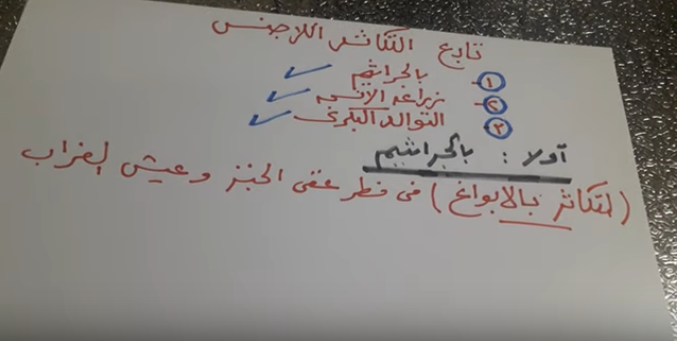 تابع التكاثر اللاجنسى
١- بالجراثيم
٢- زراعة الأنسجه
٣- التوالد البكرى
أولا : بالجراثيم
(لتكاثر بالابواغ) فى فطر عفن الخبز وعيش الغراب